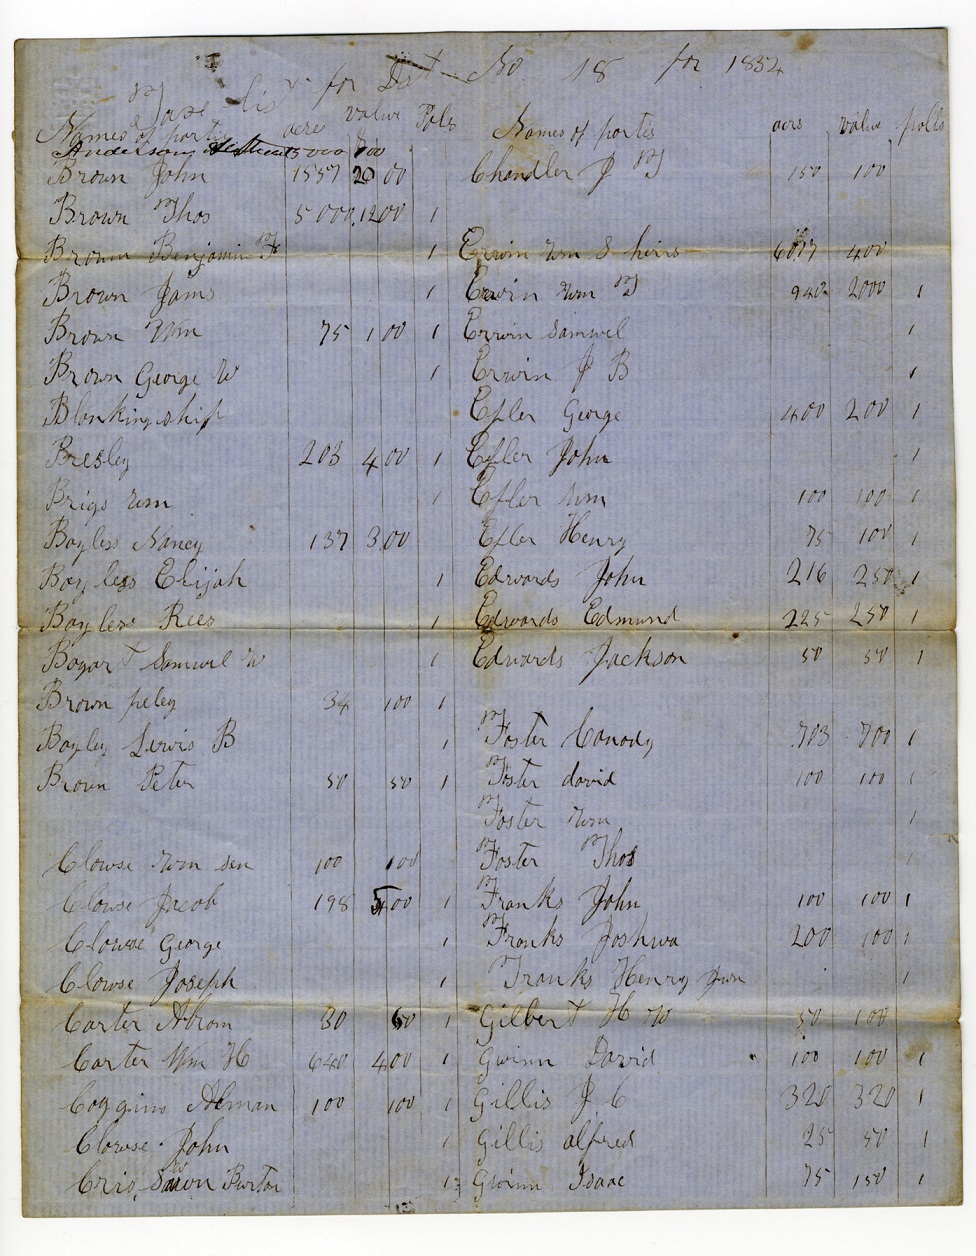 Taxe List for Dist No 18 for 1852
Names of parties acres value Pols
5000 100
Brown John 1557 20 00
Brown Thos 5000 1200 1
Brown Benjamin F 1
Brown Jams 1
Brown Wm 75 100 1
Brown George W 1
Blankingship
Bresley 203 400 1
Brigs Wm 1
Bayless Nancy 137 300
Bayless Elijah 1
Bayless Rees 1
Bogart Samuel W 1
Brown peley 34 100 1
Bayley Lewis B 1
Brown Peter 50 50 1
Clowse Wm sen 100 100
Clowse Jacob 198 500 1
Clowse George 1
Clowse Joseph 1
Carter Abram 80 60 1
Carter Wm H 640 400 1
Coggins Alman 100 100 1
Clowse John 1
Burton 1
Names of parties acrs value polls
Chandler J 150 100
Erwin Wm S heirs 6017 400
Erwin Wm 940 2000 1
Erwin Samuel 1
Erwin J B 1
Efler George 400 200 1
Efler John 1
Efler Wm 100 100 1
Efler Henry 75 100 1
Edwards John 216 250 1
Edwards Edmund 225 250 1
Edwards Jackson 50 50 1
Foster Canody 703 700 1
Foster david 100 100 1
Foster Wm 1
Foster Thos 1
Franks John 100 100 1
Franks Joshua 200 100 1
Franks Henry Jun 1
Gilbert H W 50 100
Gwinn David 100 100 1
Gillis J C 320 320 1
Gillis alfred 25 50 1
Gwinn Isaac 75 150 1